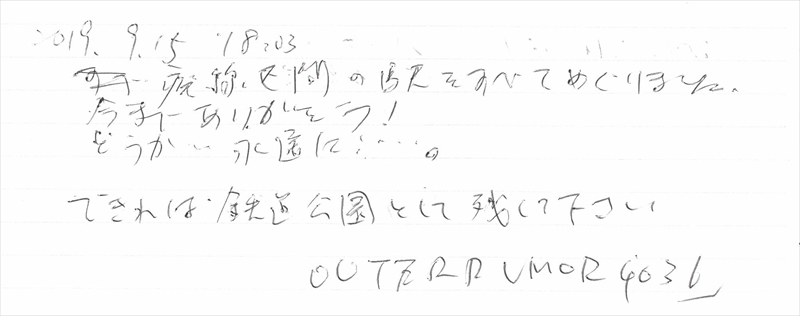 2019. 9.15 18:03
廃線区間の駅をすべてめぐりました。
今までありがとう!
どうか…永遠に…。
できれば鉄道公園として残して下さい
OUTERRUMOR4036